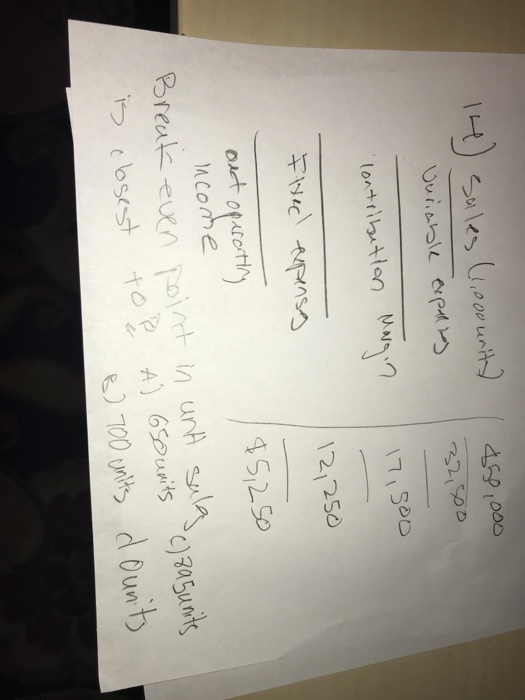 14) Sales (1,000 units) $50,000
Variable expenses 32,500
Contribution Margin 17,500
Fixed expenses 12,250
net operating income $5,250
Break even point in unit sales
is closest to? A) 650 units C) 895 units
B) 700 units d 0 units